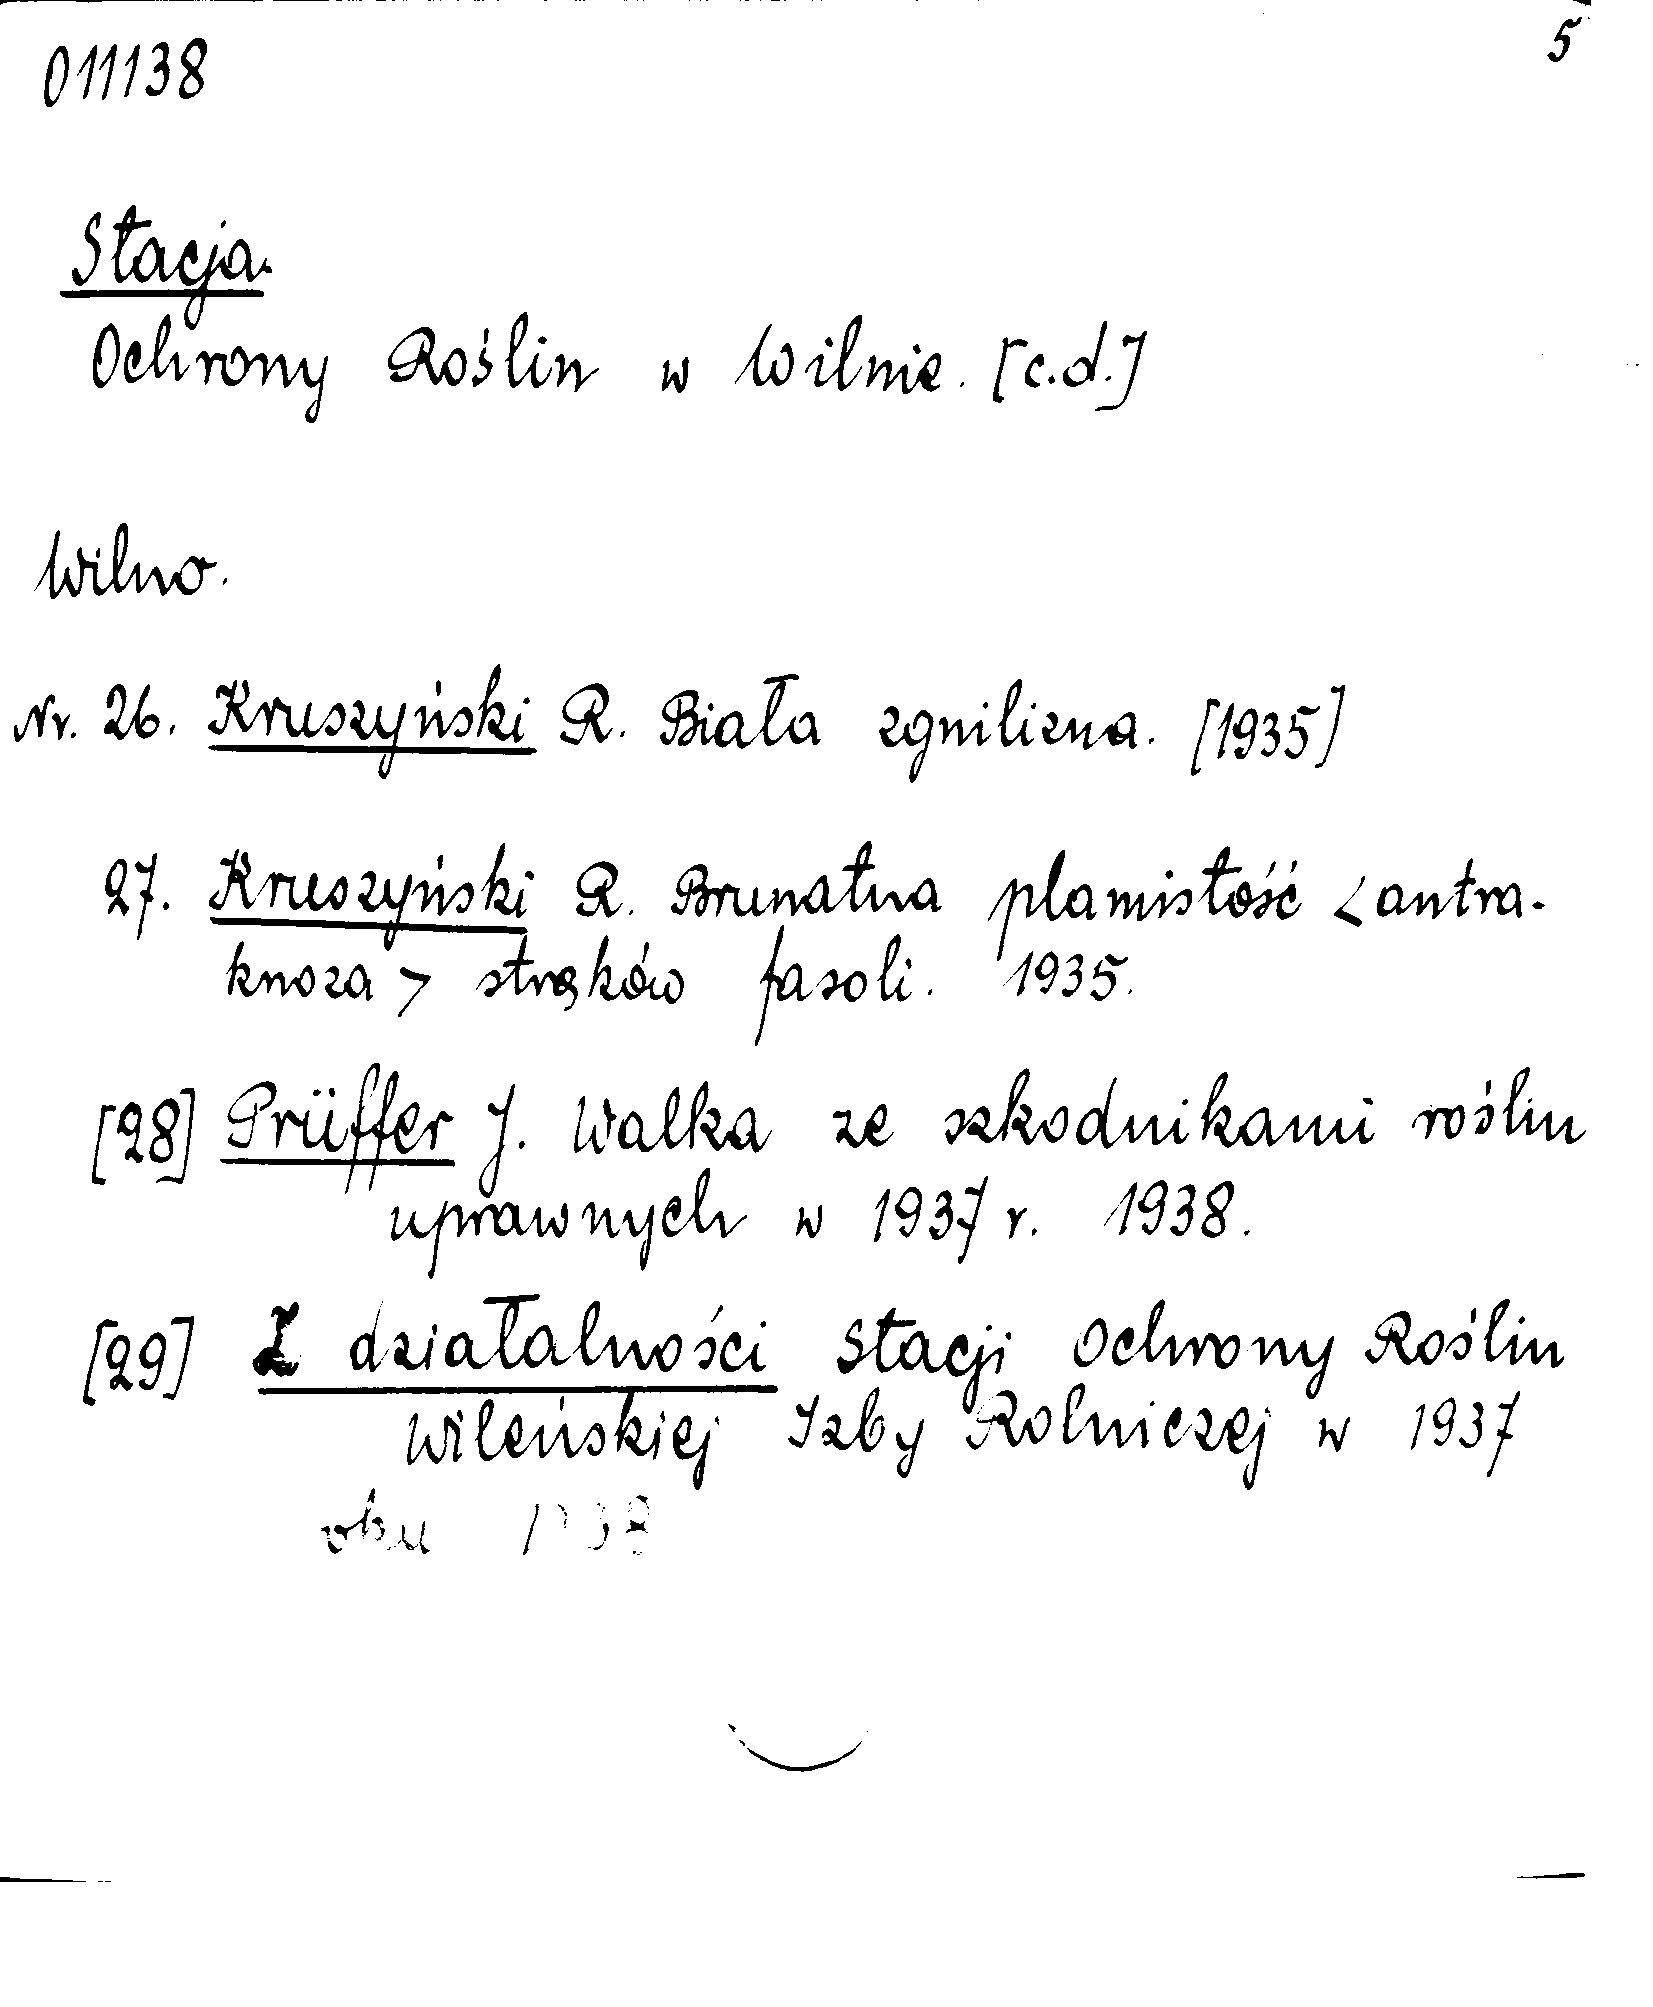 011138
5
Stacja
Ochrony Roślin w Wilnie. [c.d.]
Wilno.
Nr. 26. Kruszyński R. Biała zgnilizna. [1935]
27. Kruszyński R. Brunatna plamistość <antra-
knoza> strąków fasoli. 1935.
[28] Prüffer J. Walka ze szkodnikami roślin
uprawnych w 1937 r. 1938.
[29] Z działalności Stacji Ochrony Roślin
Wileńskiej Izby Rolniczej w 1937
oku 1938